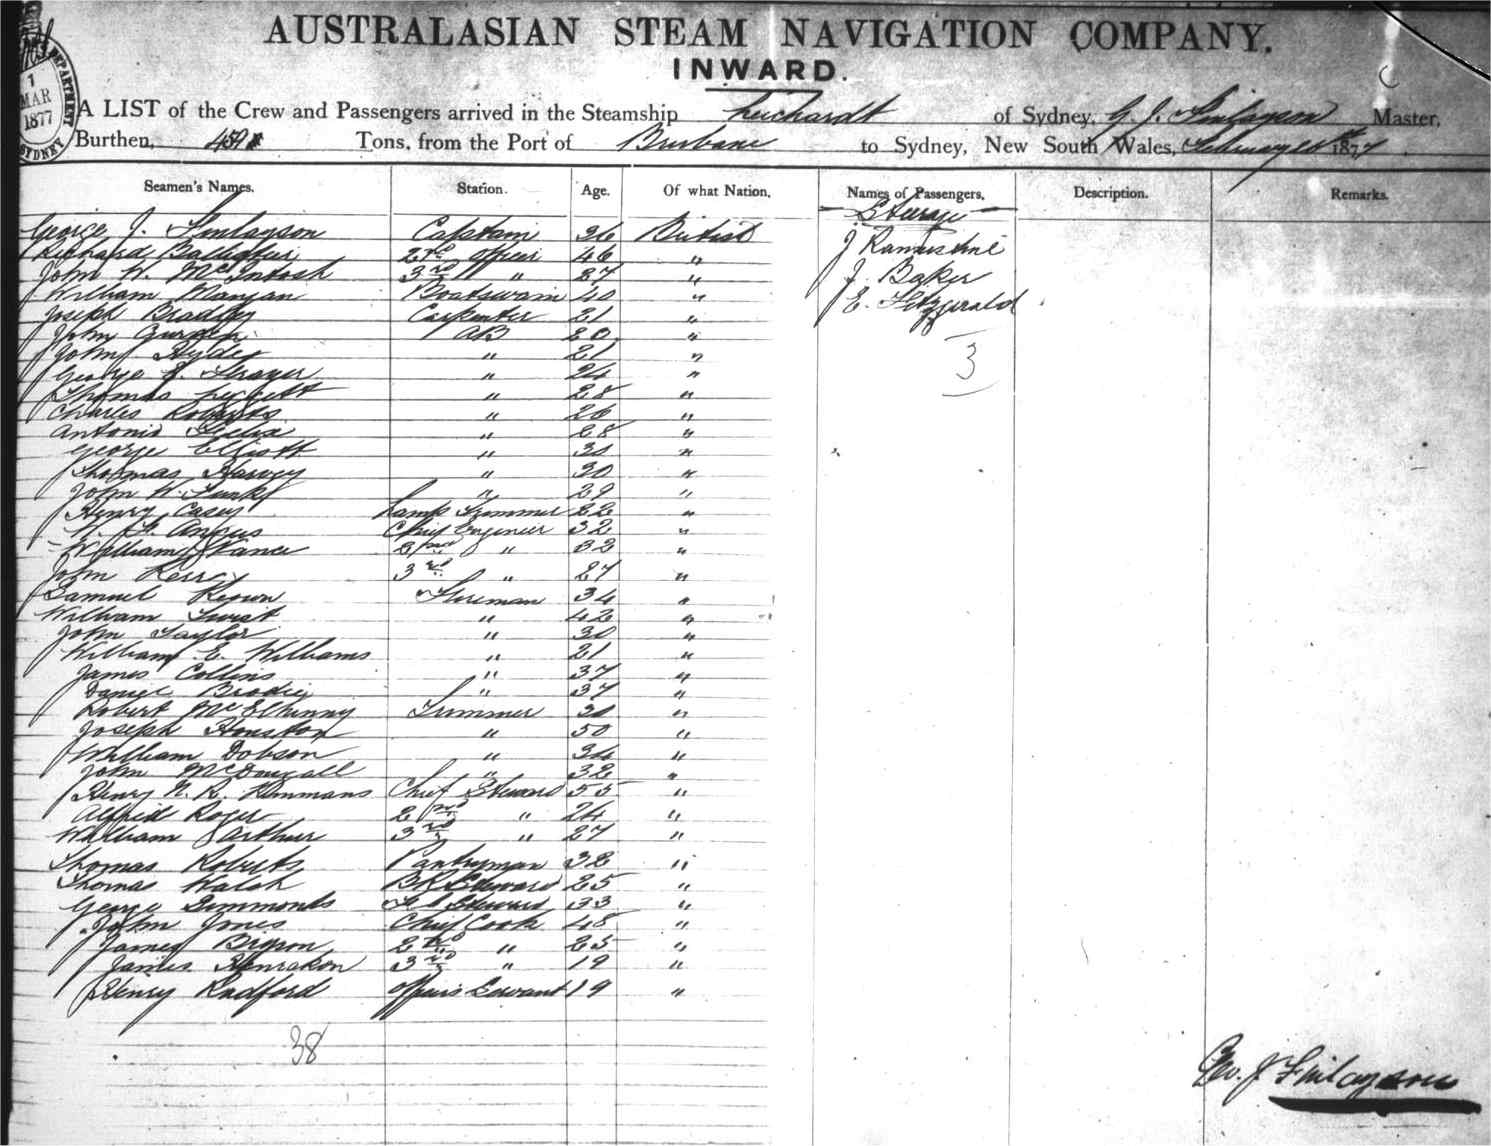 AUSTRALASIAN STEAM NAVIGATION COMPANY.
INWARD.
DEPARTMENT
1
MAR
1877
SYDNEY
A LIST of the Crew and Passengers arrived in the Steamship Leichardt of Sydney, G. J. Finlayson Master,
Burthen, Tons, from the Port of Brisbane to Sydney, New South Wales, February 1877
Seamen's Names. Station. Age. Of what Nation. Names of Passengers. Description. Remarks.
Steerage
George J. Finlayson Captain 36 British
J
Richard 2nd Officer 46 "
John W. McIntosh 3rd " 27 "
J. Baker
William Mangan Boatswain 40 "
E. Fitzgerald
Joseph Bradley Carpenter 21 "
John AB 20 "
John Hyde " 21 "
George " 24 "
3
Thomas " 28 "
Charles Roberts " 26 "
Antonio Felix " 28 "
George Elliott " 30 "
Thomas Harvey " 30 "
John W. Funk " 29 "
Henry Casey Lamp Trimmer 22 "
Angus Chief Engineer 32 "
William Vance 2nd " 32 "
John Kerr 3rd " 27 "
Samuel Keown Fireman 34 "
William " 42 "
John Taylor " 30 "
William E. Williams " 21 "
James Collins " 37 "
Daniel Brodie " 37 "
Robert McElhinny Trimmer 30 "
Joseph Houston " 50 "
William Dobson " 34 "
John McDougall " 32 "
Henry N. R. Chief Steward 55 "
Alfred Roger 2nd " 24 "
William Arthur 3rd " 27 "
Thomas Roberts Pantryman 32 "
Thomas Walsh Steward 25 "
George Simmonds Steward 33 "
John Jones Chief Cook 48 "
James 2nd " 25 "
James 3rd " 19 "
Henry Radford Servant 19 "
38
Geo. J Finlayson